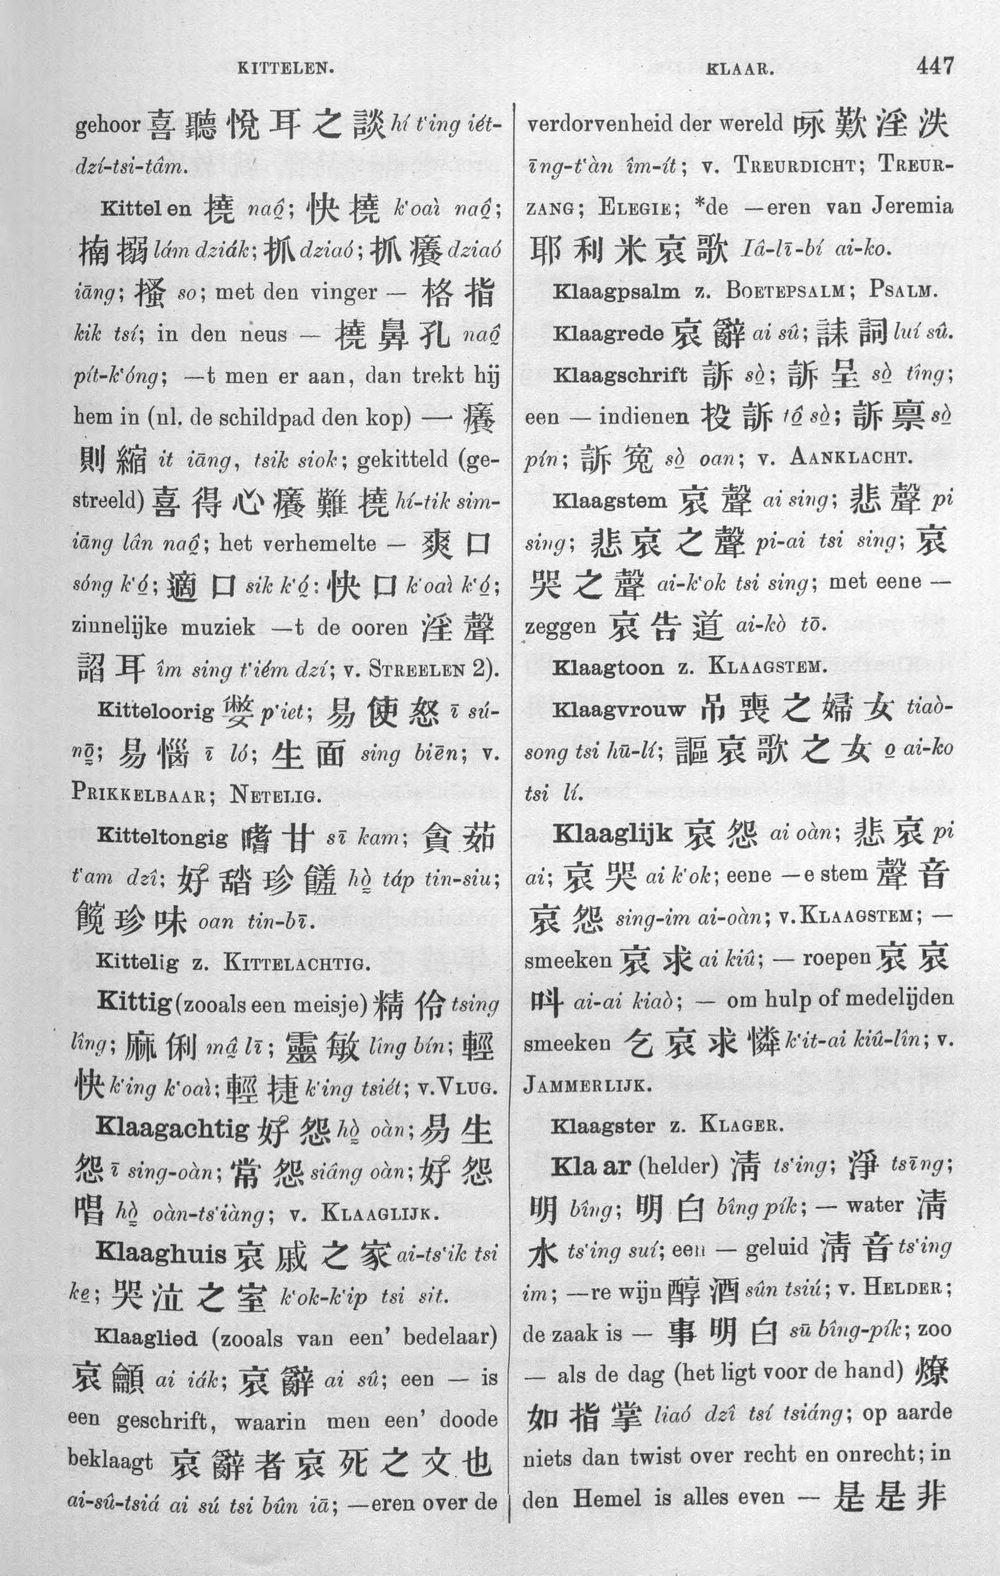 KITTELEN.
KLAAR. 447
gehoor 喜聽悅耳之談 hí t‘ing iét-
dzí-tsi-tâm.
Kittelen 撓 naō̤; 快撓 k‘oaì naō̤;
搚搦 lám dziák; 抓 dziaó; 抓癢 dziaó
iāng; 搔 so; met den vinger — 格指
kik tsí; in den neus — 撓鼻孔 naō̤
pít-k‘óng; —t men er aan, dan trekt hij
hem in (nl. de schildpad den kop) 一癢
則縮 it iāng, tsik siok; gekitteld (ge-
streeld) 喜得心癢難撓 hí-tik sim-
iāng lân naō̤; het verhemelte — 爽口
sóng k‘ó̤; 適口 sik k‘ó̤: 快口 k‘oaì k‘ó̤;
zinnelijke muziek —t de ooren 淫聲
謟耳 îm sing t‘iém dzí; v. STREELEN 2).
Kitteloorig 嫳 p‘iet; 易使怒 ī sú-
nō̤; 易惱 ī ló; 生面 sing biēn; v.
PRIKKELBAAR; NETELIG.
Kitteltongig 嗜甘 sī kam; 貪茹
t‘am dzî; 好䑜珍饈 hò̤ táp tin-siu;
餽珍味 oan tin-bī.
Kittelig z. KITTELACHTIG.
Kittig (zooals een meisje) 精伶 tsing
lîng; 麻俐 mâ̤ lī; 靈敏 lîng bín; 輕
快 k‘ing k‘oaì; 輕捷 k‘ing tsiét; v. VLUG.
Klaagachtig 好怨 hò̤ oàn; 易生
怨 ī sing-oàn; 常怨 siâng oàn; 好怨
唱 hò̤ oàn-ts‘iàng; v. KLAAGLIJK.
Klaaghuis 哀戚之家 ai-ts‘ik tsi
ke̤; 哭泣之室 k‘ok-k‘ip tsi sit.
Klaaglied (zooals van een’ bedelaar)
哀籲 ai iák; 哀辭 ai sû; een — is
een geschrift, waarin men een’ doode
beklaagt 哀辭者哀死之文也
ai-sû-tsiá ai sú tsi bûn iā; —eren over de
verdorvenheid der wereld 咏歎淫泆
īng-t‘àn îm-ít; v. TREURDICHT; TREUR-
ZANG; ELEGIE; *de —eren van Jeremia
耶利米哀歌 Iâ-lī-bí ai-ko.
Klaagpsalm z. BOETEPSALM; PSALM.
Klaagrede 哀辭 ai sû; 誄詞 luí sû.
Klaagschrift 訴 sò̤; 訴呈 sò̤ tîng;
een — indienen 投訴 tô̤ sò̤; 訴禀 sò̤
pín; 訴寃 sò̤ oan; v. AANKLACHT.
Klaagstem 哀聲 ai sing; 悲聲 pi
sing; 悲哀之聲 pi-ai tsi sing; 哀
哭之聲 ai-k‘ok tsi sing; met eene —
zeggen 哀告道 ai-kò tō.
Klaagtoon z. KLAAGSTEM.
Klaagvrouw 吊喪之婦女 tiaò-
song tsi hū-lí; 謳哀歌之女 o̤ ai-ko
tsi lí.
Klaaglijk 哀怨 ai oàn; 悲哀 pi
ai; 哀哭 ai k‘ok; eene —e stem 聲音
哀怨 sing-im ai-oàn; v. KLAAGSTEM; —
smeeken 哀求 ai kiû; — roepen 哀哀
叫 ai-ai kiaò; — om hulp of medelijden
smeeken 乞哀求憐 k‘it-ai kiû-lîn; v.
JAMMERLIJK.
Klaagster z. KLAGER.
Klaar (helder) 淸 ts‘ing; 淨 tsīng;
明 bîng; 明白 bîng pík; — water 淸
水 ts‘ing suí; een — geluid 淸音 ts‘ing
im; —re wijn 醇酒 sûn tsiú; v. HELDER;
de zaak is — 事明白 sū bîng-pík; zoo
— als de dag (het ligt voor de hand) 燎
如指掌 liaó dzî tsí tsiáng; op aarde
niets dan twist over recht en onrecht; in
den Hemel is alles even — 是是非